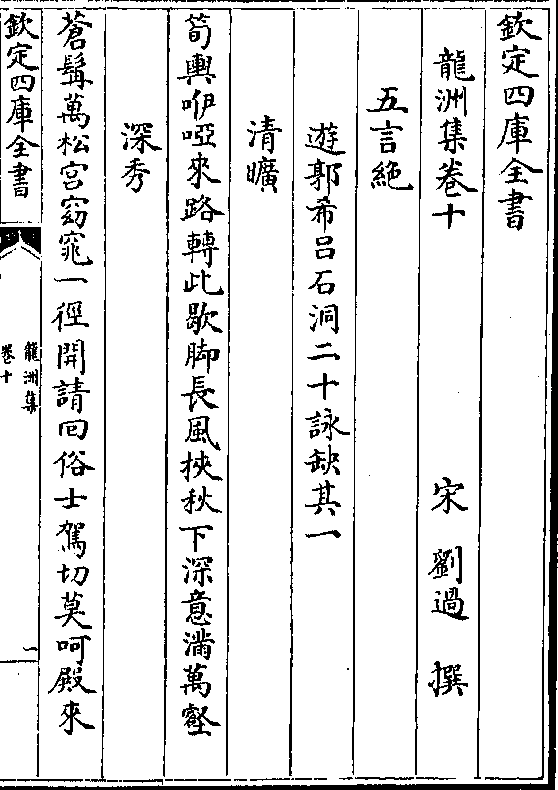 欽定四庫全書
龍洲集卷十
宋 劉過 撰
五言絶
遊郭希吕石洞二十詠缺其一
清曠
荀輿咿啞來路轉此歇脚長風挾秋下深意滿萬壑
深秀
蒼髯萬松宫窈窕一徑開請回俗士駕切莫呵殿來
欽定四庫全書
龍洲集
卷十
一